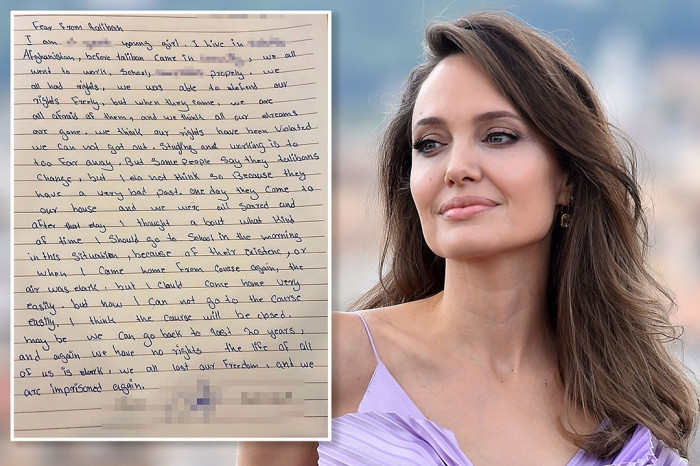 Fear from taliban
I am young girl, I live in
Afghanistan, before taliban came in , we all
went to work, School, properly. we
all had rights, we was able to defend our
rights freely, but when they came, we are
all afraid of them, and we think all our dreams
are gone. we think our rights have been violated
we can not got out. Studing and working is to
too far away. But Some people Say they talibans
Change, but I do not think so Because they
have a very bad past. one day they came to
our house and we were all scared and
after that day I thought a bout what Kind
of time I Should go to School in the morning
in this situation, because of their existenc, or
when I came home from course again, the
air was dark. but I Could come home very
easily. but now I can not go to the Course
easily. I think the course will be closed.
may be we can go back to last 20 years,
and again we have no rights the life of all
of us is dark, we all lost our freedom, and we
are imprisoned again.